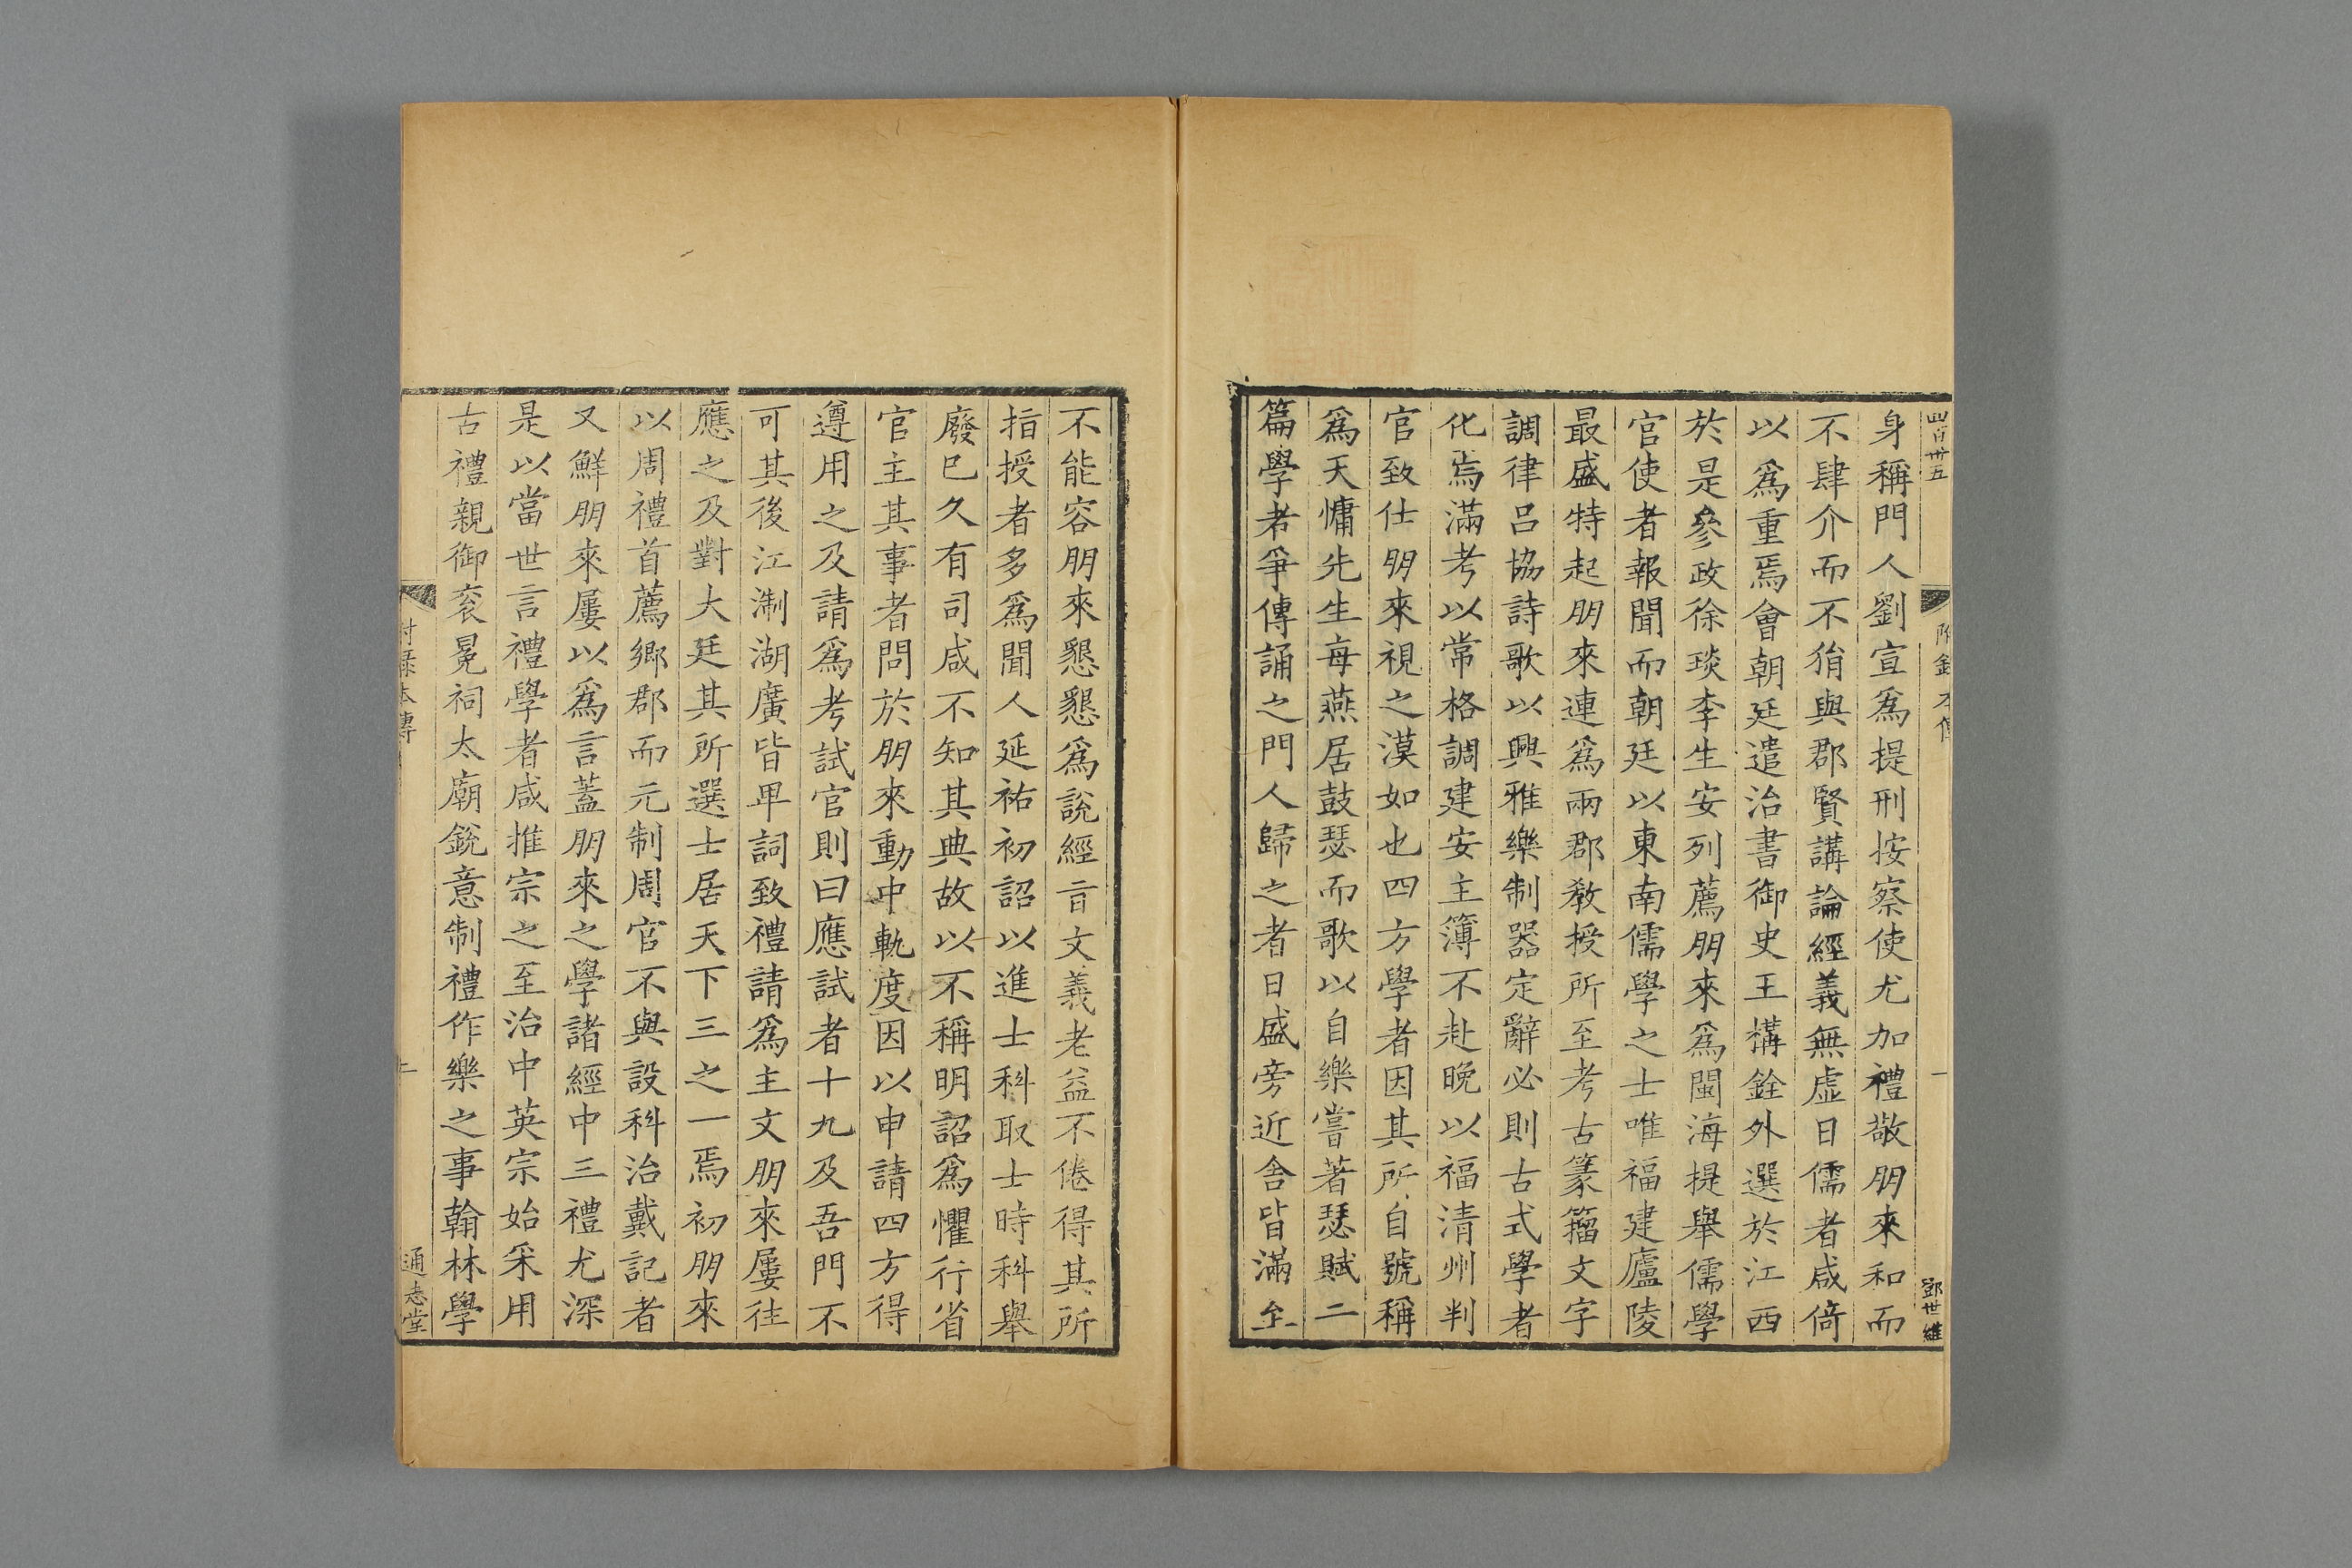 四百卅五
附錄本傳
一
鄧世維
身稱門人劉宣爲提刑按察使尤加禮敬朋來和而
不肆介而不狷與郡賢講論經義無虛日儒者咸倚
以爲重焉會朝廷遣治書御史王構銓外選於江西
於是參政徐琰李生安列薦朋來爲閩海提舉儒學
官使者報聞而朝廷以東南儒學之士唯福建廬陵
最盛特起朋來連爲兩郡敎授所至考古篆籀文字
調律呂協詩歌以興雅樂制器定辭必則古式學者
化焉滿考以常格調建安主簿不赴晚以福清州判
官致仕朋來視之漠如也四方學者因其所自號稱
爲天慵先生每燕居鼓瑟而歌以自樂嘗著瑟賦二
篇學者爭傳誦之門人歸之者日盛旁近舍皆滿至
不能容朋來懇懇爲說經言文義老益不倦得其所
指授者多爲聞人延祐初詔以進士科取士時科舉
廢已久有司咸不知其典故以不稱明詔爲懼行省
官主其事者問於朋來動中軌度因以申請四方得
遵用之及請爲考試官則曰應試者十九及吾門不
可其後江淛湖廣皆卑詞致禮請爲主文朋來屢往
應之及對大廷其所選士居天下三之一焉初朋來
以周禮首薦鄉郡而元制周官不與設科治戴記者
又鮮朋來屢以爲言蓋朋來之學諸經中三禮尤深
是以當世言禮學者咸推宗之至治中英宗始采用
古禮親御袞冕祠太廟銳意制禮作樂之事翰林學
附錄本傳
通志堂